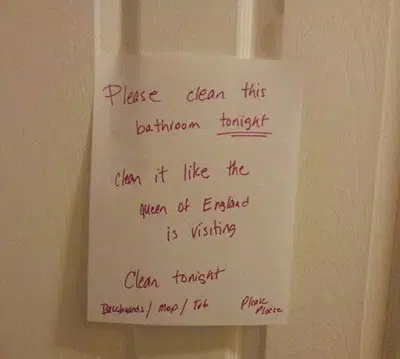 Please clean this
bathroom tonight
Clean it like the
queen of England
is visiting
Clean tonight
Baseboards / Mop / Tub Please
Please